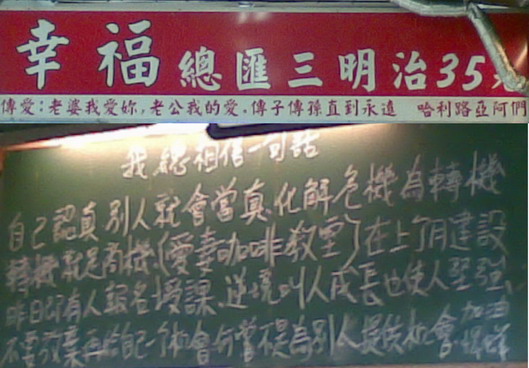 幸福總匯三明治35元
傳愛:老婆我愛妳,老公我的愛.傳子傳孫直到永遠 哈利路亞阿們
我總相信一句話
自己認真別人就會當真化解危機為轉機
轉機就是商機(愛妻咖啡教室)在上個月建設
昨日即有人報名授課、逆境叫人成長也使人堅強、
不要放棄再給自己一個機會何嘗不是為別人提供機會加油